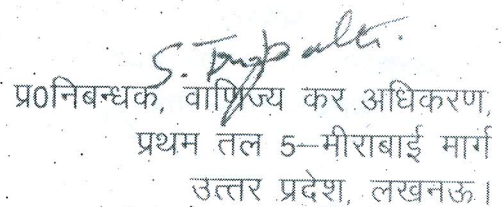 प्र0निबन्धक, वाणिज्य कर अधिकरण,
प्रथम तल 5–मीराबाई मार्ग
उत्तर प्रदेश, लखनऊ।